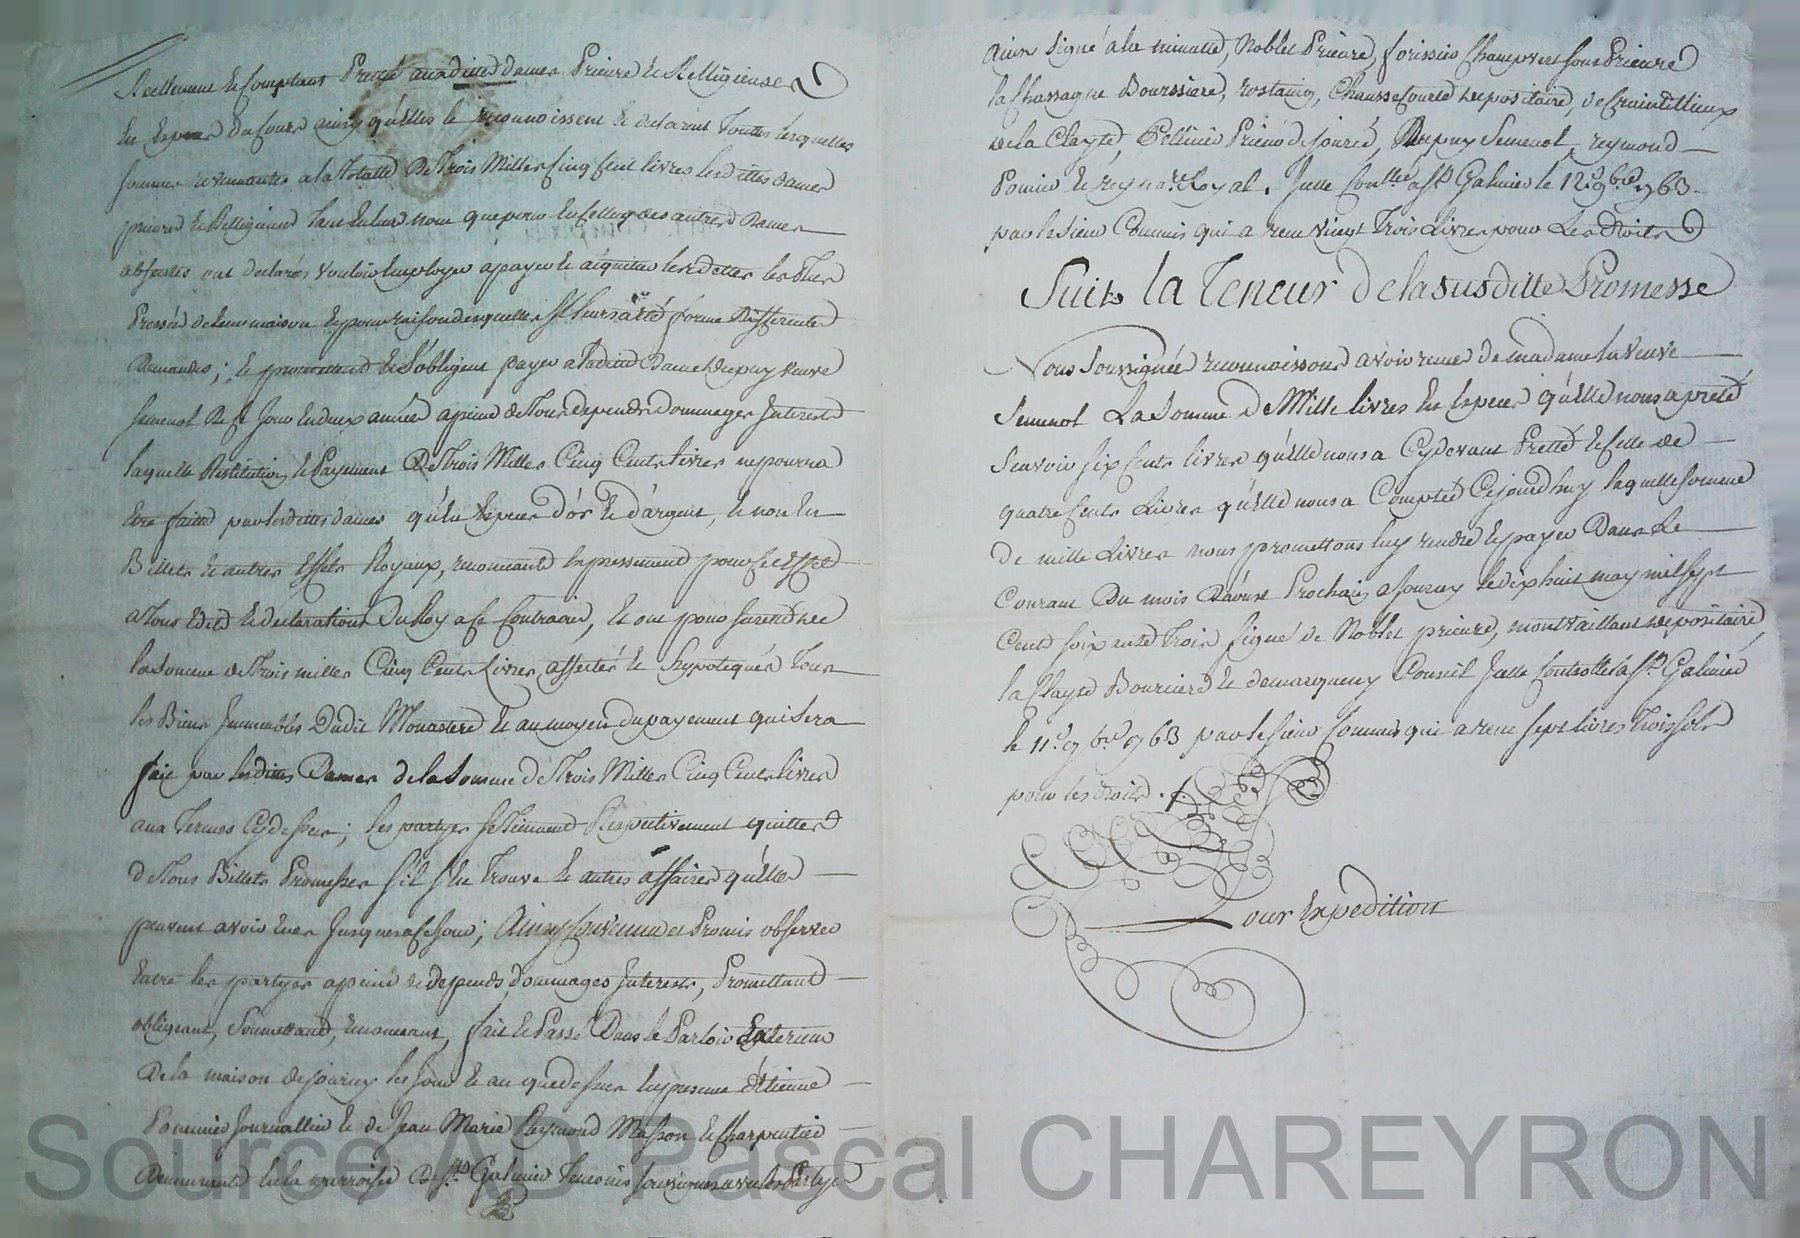 Reellement et Comptant Preté auxdittes dames Prieure et Relligieuses
En Espece du Cours ainsy qu'Elles le reconnoissent et declarent toutes lesquelles
sommes revenantes a la totalle De Trois Milles Cinq Cent livres lesdittes dames
prieure et Relligieuses tant en leur nom que pour et celluy des autres Dames
absentes ont declarés vouloir employer a payer et aiquitter les dettes les plus
Pressée de leur maison et pour raison desquelles il leurs a eté formé Differentes
Demandes; et promettent et s'obligent payer a laditte Dame dupuy veuve
Semenol De ce Jour en deux année a peine de Tous depends Dommages Interests
laquelle Restitution et Payement De Trois Milles Cinq Cents livres ne pourra
Etre faitte par lesdittes dames qu'En Espece d'or et d'argent, et non En
Billets et autres Effets Royaux, renonceants Expressement pour ce Effet
a Tous Edits et declarations Du Roy a ce Contraire, et ont pour sureté de
la Somme de Trois milles Cinq Cents Livres, affectés et hypotequés Tous
les Biens Immeubles Dudit Monastere et au moyen du payement qui sera
fait par lesdittes Dames de la Somme de Trois Milles Cinq Cents livres
aux Termes Cydessus; les partyes se Tiennent Respectivement quittes
de Tous Billets Promesses s'il s'en Trouve et autres affaires qu'elles
peuvent avoir Eues Jusques a ce Jour; Ainsy Convenu et Promis observer
Entre les partyes a peine de depends, dommages Interests, Promettant
obligeant, Soumettant, renonceant, fait et Passé Dans le Parloir Exterieur
De la maison de Jourcey les Jour et an que dessus En presence d'Etienne
Pommier Journallier et de Jean Marie Reymond Masson et Charpentier
Demeurants En la parroisse de St Galmier Temoins soussignes avec les Partyes
ainsy Signé a la minutte, Noblet Prieure, forissier Champvert sous Prieure
la Chassagne Boursiere, rostaing, Chaussecourte depositaire, de
de la Clayte, Pellissier Prieur de Jourcé, Dupuy Semenol, reymond
Pomier et reynard Royal. Julle Conllé a St Galmier le 12e 9bre 1763
par le Sieur Commis qui a reçu vingt Trois Livres pour Les droits
Suit la Teneur de la susditte Promesse
Nous Soussignées reconnoissons avoir reçues de madame la veuve
Semenol La Somme de Mille livres En Especes qu'elle nous a prêté
Sçavoir six Cents livres qu'elle nous a Cydevant Pretté et celle de
quatre Cents Livres qu'elle nous a Comptée Cejourd'huy laquelle somme
de mille Livres nous promettons luy rendre et payer Dans Le
Courant Du mois d'aoust Prochain, a Jourcey le dix huit may mil sept
Cent soixante Trois signé de Noblet prieure, montvaillant depositaire,
la Clayte Bourciere et demarqueny Conseil Julle Controllé a St Galmier
le 11e 9bre 1763 par le sieur Commis qui a reçu sept livres Trois sols
pour les droits.
Pour Expedition
Source AD Pascal CHAREYRON